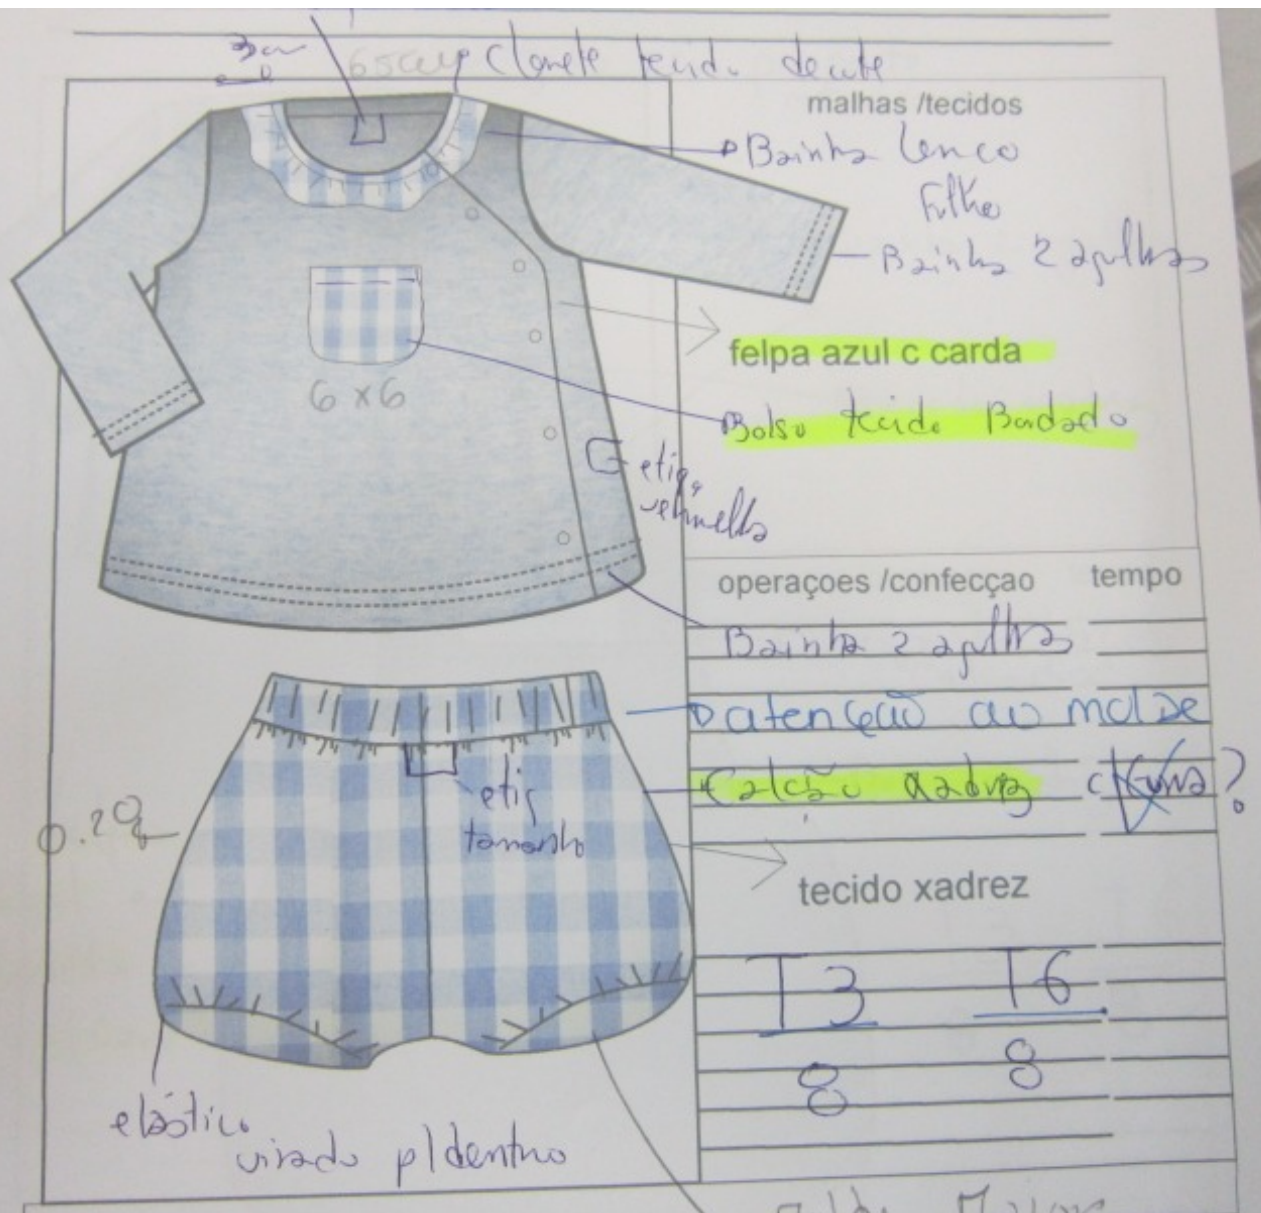 3 cm
tecido
malhas /tecidos
Bainha lenço
Folho
Bainha 2 agulhas
felpa azul c carda
Bolso tecido Bordado
6 x 6
etiq.
vermelha
operaçoes /confecçao tempo
Bainha 2 agulhas
atenção ao molde
Calção xadrez
?
etiq
tamanho
tecido xadrez
T3 T6
8 8
elástico
virado p/dentro